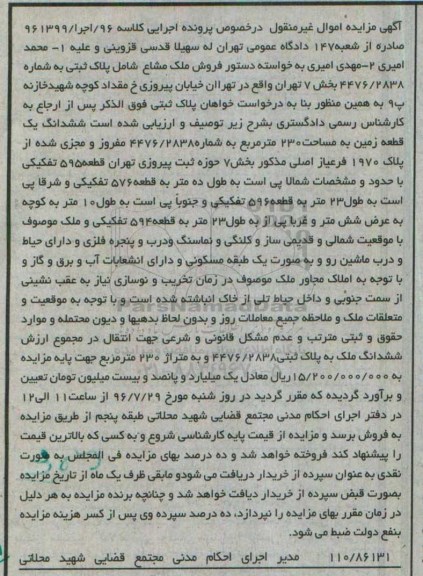 آگهی مزایده اموال غیرمنقول درخصوص پرونده اجرایی کلاسه ۹۶/اجرا/۹۶۱۳۹۹
صادره از شعبه۱۴۷ دادگاه عمومی تهران له سهیلا قدسی قزوینی و علیه ۱- محمد
امیری ۲-مهدی امیری به خواسته دستور فروش ملک مشاع شامل پلاک ثبتی به شماره
۴۴۷۶/۲۸۳۸ بخش ۷ تهران واقع در تهراان خیابان پیروزی خ مقداد کوچه شهیدخازنه
پ۹ به همین منظور بنا به درخواست خواهان پلاک ثبتی فوق الذکر پس از ارجاع به
کارشناس رسمی دادگستری بشرح زیر توصیف و ارزیابی شده است ششدانگ یک
قطعه زمین به مساحت۲۳۰ مترمربع به شماره۴۴۷۶/۲۸۳۸ مفروز و مجزی شده از
پلاک ۱۹۷۰ فرعیاز اصلی مذکور بخش۷ حوزه ثبت پیروزی تهران قطعه۵۹۵ تفکیکی
با حدود و مشخصات شمالا پی است به طول ده متر به قطعه۵۷۶ تفکیکی و شرقا پی
است به طول۲۳ متر به قطعه۵۹۶ تفکیکی و جنوباً پی است به طول۱۰ متر به کوچه
به عرض شش متر و غربا پی از به طول۲۳ متر به قطعه۵۹۴ تفکیکی و ملک موصوف
با موقعیت شمالی و قدیمی ساز و کلنگی و نماسنگ ودرب و پنجره فلزی و دارای حیاط
و درب ماشین رو و به صورت یک طبقه مسکونی و دارای انشعابات آب و برق و گاز و
با توجه به املاک مجاور ملک موصوف در زمان تخریب و نوسازی نیاز به عقب نشینی
از سمت جنوبی و داخل حیاط تلی از خاک انباشته شده است و با توجه به موقعیت و
متعلقات ملک و ملاحظه جمیع معاملات روز و بدون لحاظ بدهیها و دیون محتمله و موارد
حقوق و ثبتی مترتب و عدم مشکل قانونی و شرعی جهت انتقال در مجموع ارزش
ششدانگ ملک به پلاک ثبتی۴۴۷۶/۲۸۳۸ و به متراژ ۲۳۰ مترمربع جهت پایه مزایده
به ۱۵/۲۰۰/۰۰۰/۰۰۰ریال معادل یک میلیارد و پانصد و بیست میلیون تومان تعیین
و برآورد گردیده که مقرر گردید در روز شنبه مورخ ۹۶/۷/۲۹ از ساعت۱۱ الی۱۲
در دفتر اجرای احکام مدنی مجتمع قضایی شهید محلاتی طبقه پنجم از طریق مزایده
به فروش برسد و مزایده از قیمت پایه کارشناسی شروع و به کسی که بالاترین قیمت
را پیشنهاد کند فروخته خواهد شد و ده درصد بهای مزایده فی المجلس به صورت
نقدی به عنوان سپرده از خریدار دریافت می شودو مابقی ظرف یک ماه از تاریخ مزایده
بصورت قبض سپرده از خریدار دیافت خواهد شد و چنانچه برنده مزایده به هر دلیل
در زمان مقرر بهای مزایده را نپردازد، ده درصد سپرده وی پس از کسر هزینه مزایده
بنفع دولت ضبط می شود.
۱۱۰/۸۶۱۳۱ مدیر اجرای احکام مدنی مجتمع قضایی شهید محلاتی